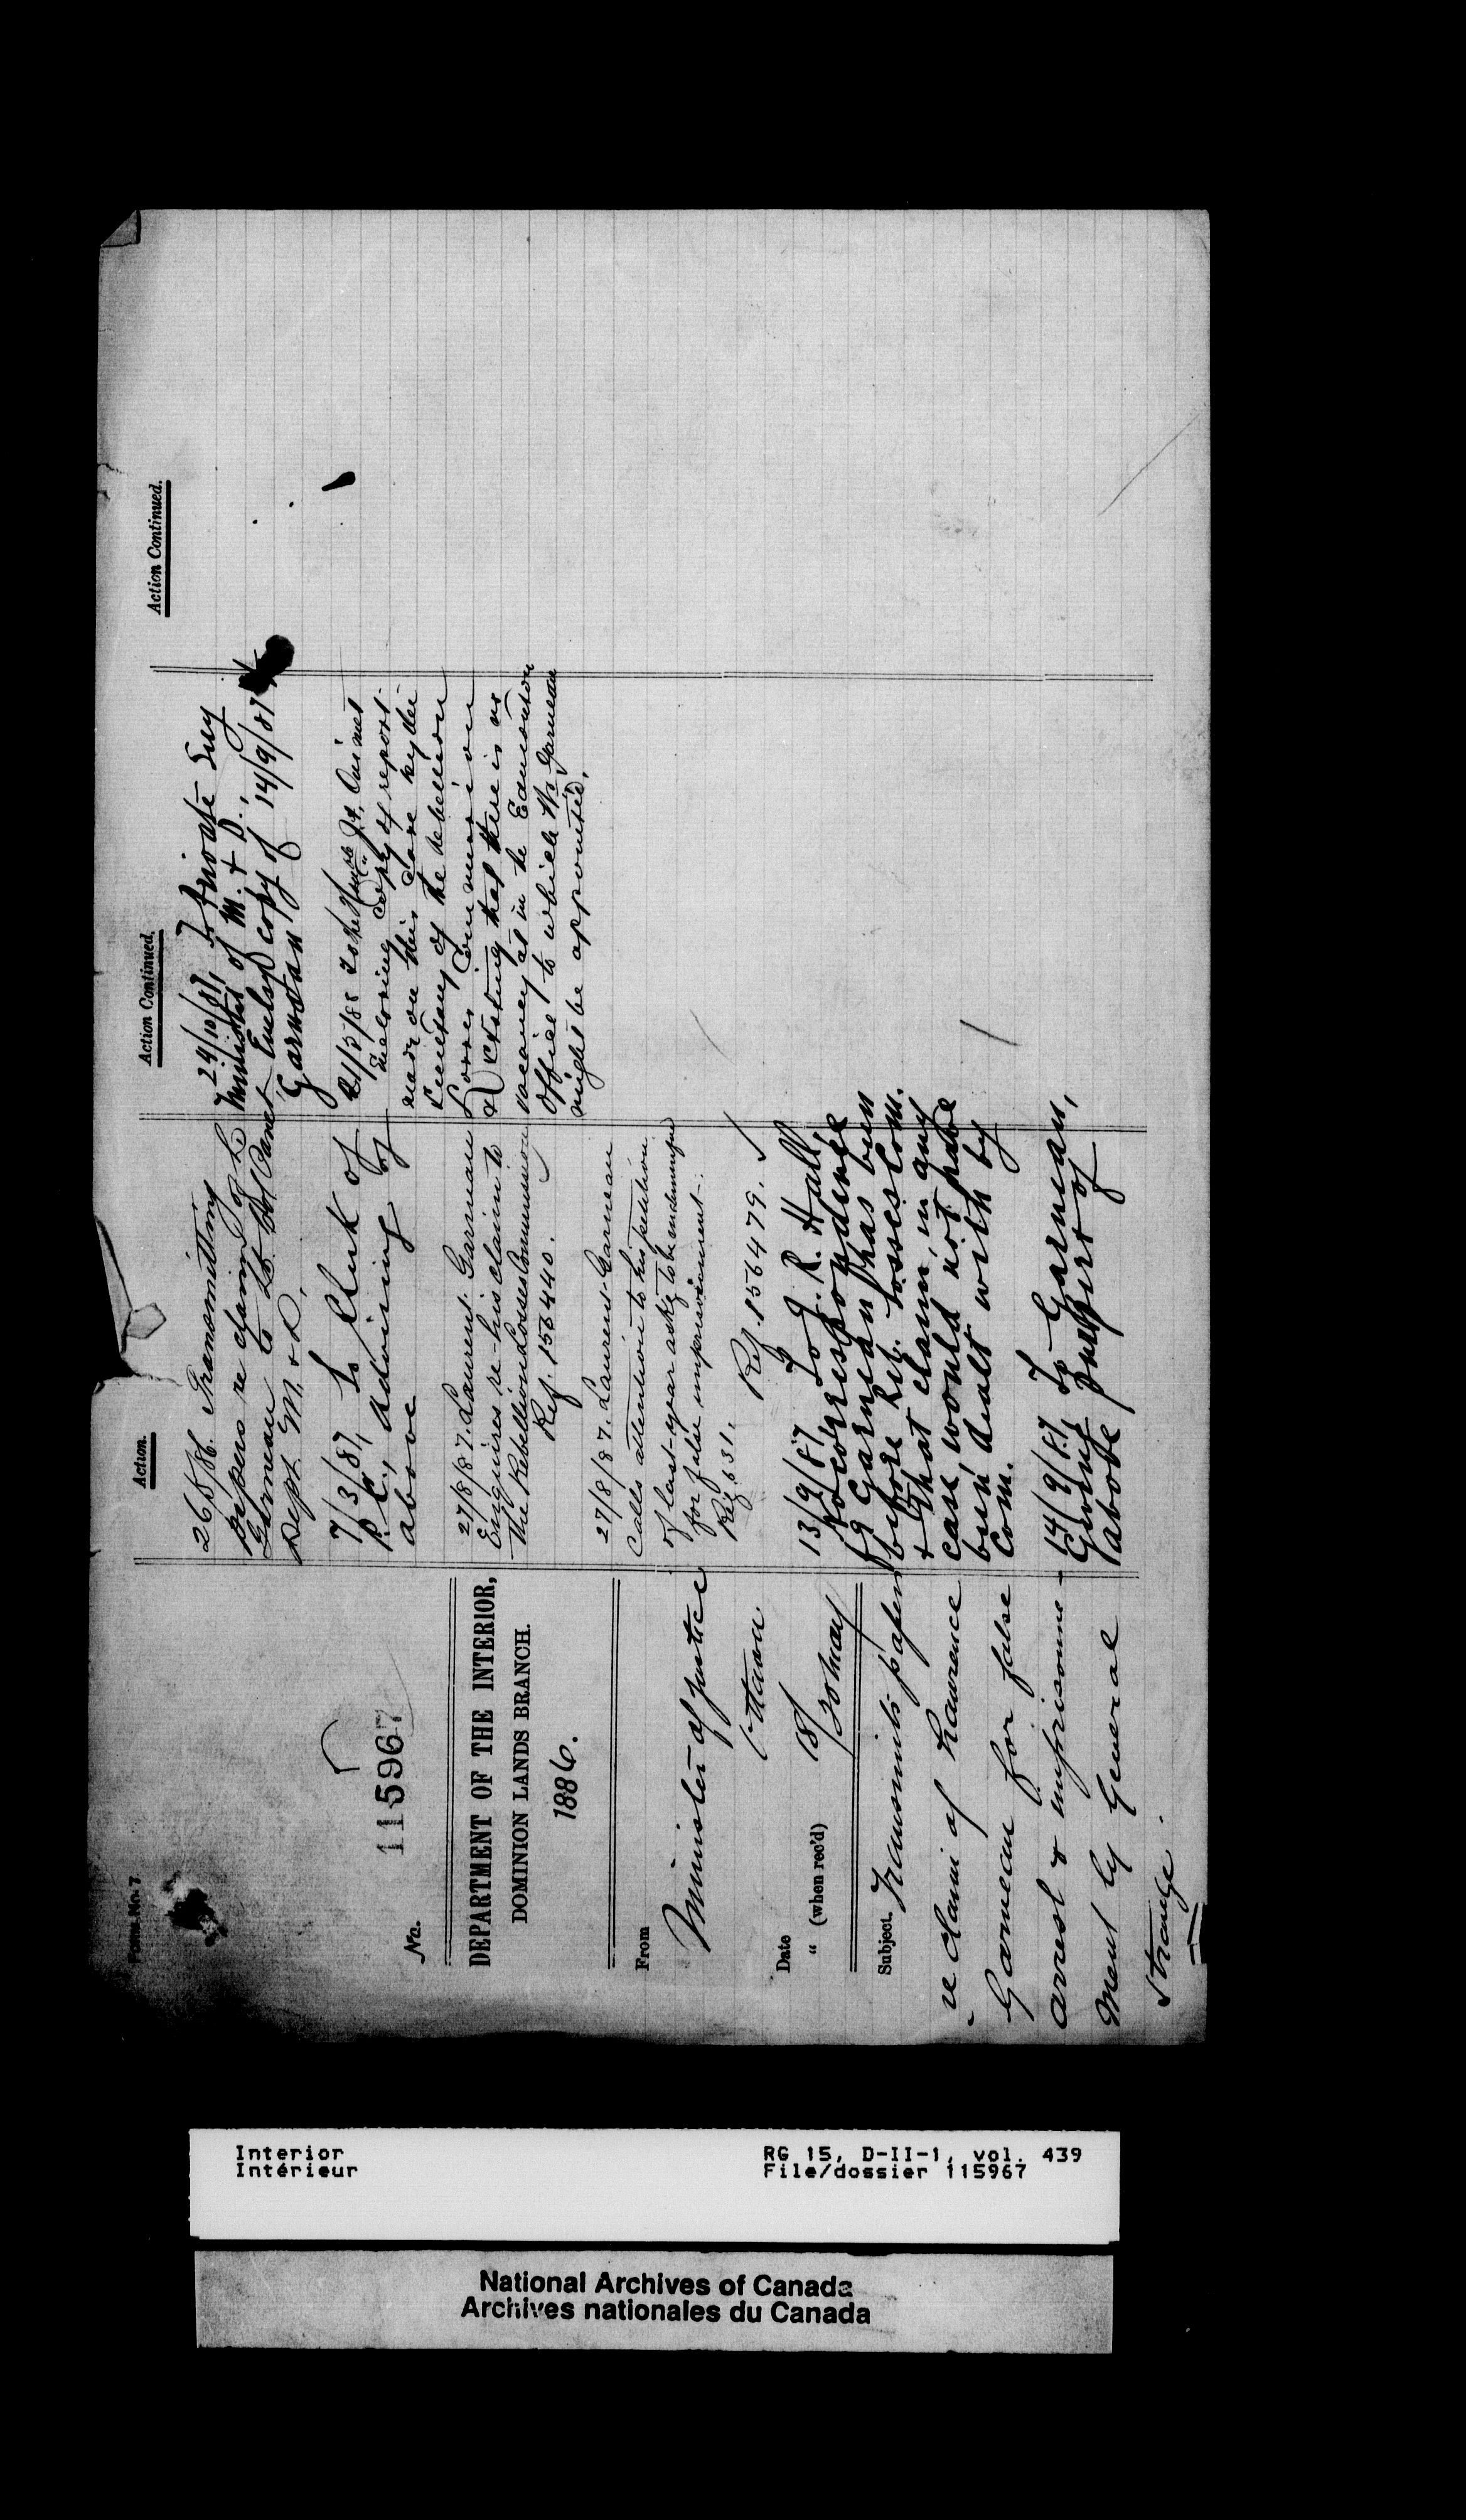 Form No. 7
No. 115967
DEPARTMENT OF THE INTERIOR,
DOMINION LANDS BRANCH.
1886.
From
Minister of Justice
Ottawa
Date 18
" (when rec'd) 20 May
Subject. Transmits papers
re claim of Lawrence
Garneau for false
arrest & imprisonment-
ment by General
Strange.
Action.
26/5/86. Transmitting
papers re claim of L.
Garneau to Lt. Col Panet
Dept. M. & D.
7/3/87, To Clerk of
P.C., Advising of
above
27/8/87. Laurent Garneau
Enquires re-his claim to
the Rebellion Losses Commission
Ref. 156440.
27/8/87. Laurent Garneau
calls attention to his petition
of last year askg to be indemnified
for false imprisonment.
Ref. 156479.
13/9/87 To J. R. Hall
No correspondence
of Garneau has been
before Reb. Losses Com.
& that claim, in any
case, would not have
been dealt with by
Com.
14/9/87, To Garneau,
Giving purport of
above
Action Continued.
24/10/87, To Private Secy
Minister of M. & D.;
Enclsg copy of 14/9/87
Garneau
21/3/88 To the Honble Jt. Ouimet
Enclosing copy of report
made on this case by the
Secretary of the Rebellion
Losses Commission
& stating that there is no
vacancy at in the Edmonton
Office to which Mr Garneau
might be appointed.
Action Continued.
Interior
Intérieur
RG 15, D-II-1, vol. 439
File/dossier 115967
National Archives of Canada
Archives nationales du Canada